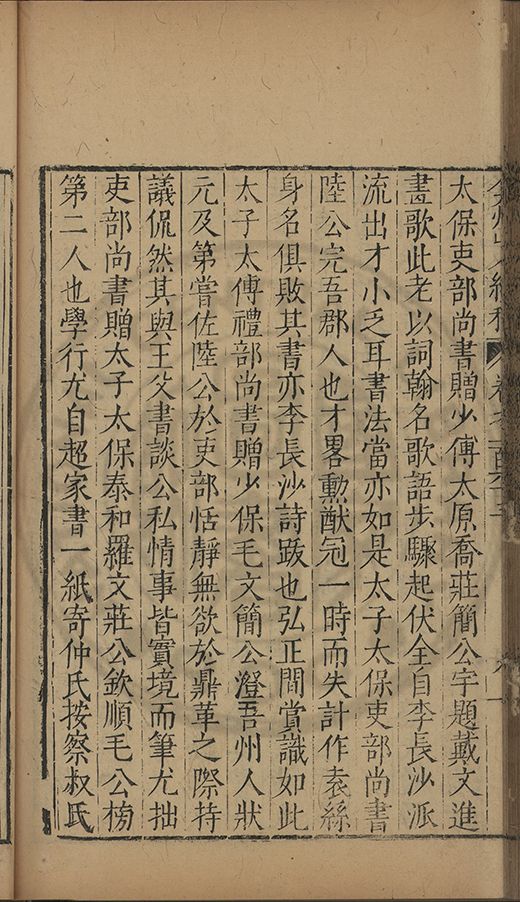 太保吏部尚書贈少傅太原喬莊簡公宇題戴文進
畫歌此老以詞翰名歌語步驟起伏全自李長沙派
流出才小乏耳書法當亦如是太子太保吏部尚書
陸公完吾郡人也才畧勳猷冠一時而失計作袁絲
身名俱敗其書亦李長沙詩跋也弘正間賞識如此
太子太傅禮部尚書贈少保毛文簡公澄吾州人狀
元及第嘗佐陸公於吏部恬靜無欲於鼎革之際持
議侃然其與王父書談公私情事皆實境而筆尤拙
吏部尚書贈太子太保泰和羅文莊公欽順毛公榜
第二人也學行尤自超家書一紙寄仲氏按察叔氏